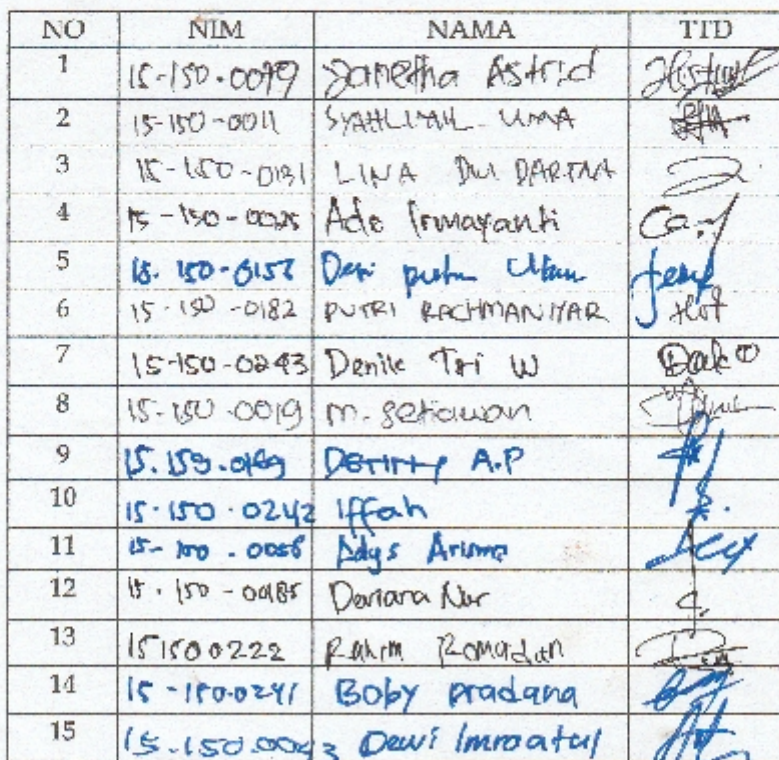 NO NIM NAMA TTD
1 15-150-0079 Janetha Astrid
2 15-150-0011 SYAHLIMIL UMA
3 15-150-0131 LINA DWI
4 15-150-0025 Ade Irmayanti
5 15-150-0157 Desi putri
6 15-150-0182 PUTRI RACHMANIYAR
7 15-150-0243 Denile Tri W
8 15-150-0019 M. Setiawan
9 15.150.0169 A.P
10 15-150.0242 Iffah
11 15-150.0056 Adys Arisma
12 15.150-00185 Nur
13 151500222 Rahim Romadan
14 15-150-0241 Boby pradana
15 15-150.0043 Dewi Imroatul